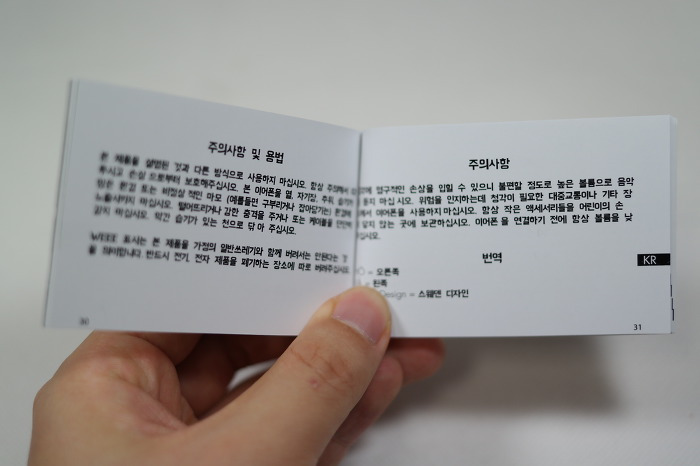 주의사항 및 용법
본 제품을 설명된 것과 다른 방식으로 사용하지 마십시오. 항상 주의해서
주시고 손상으로부터 보호해주십시오. 본 이어폰을 열, 자기장, 추위, 습기나
또는 비정상 적인 마모 (예를들면 구부리거나 잡아당기는)
마십시오. 떨어뜨리거나 강한 충격을 주거나 또는 케이블을
마십시오. 약간 습기가 있는 천으로 닦 아 주십시오.
WEEE 표시는 본 제품을 가정의 일반쓰레기와 함께 버려서는 안된다는 것
을 의미합니다. 반드시 전기, 전자 제품을 폐기하는 장소에 따로 버려주십시오.
30
주의사항
영구적인 손상을 입힐 수 있으니 불편할 정도로 높은 볼륨으로 음악
듣지 마십 시오. 위험을 인지하는데 청각이 필요한 대중교통이나 기타 장
에서 이어폰을 사용하지 마십시오. 항상 작은 액세서리들을 어린이의 손
닿지 않는 곳에 보관하십시오. 이어폰을 연결하기 전에 항상 볼륨을 낮
십시오.
번역
= 오른쪽
= 왼쪽
Design = 스웨덴 디자인
KR
31